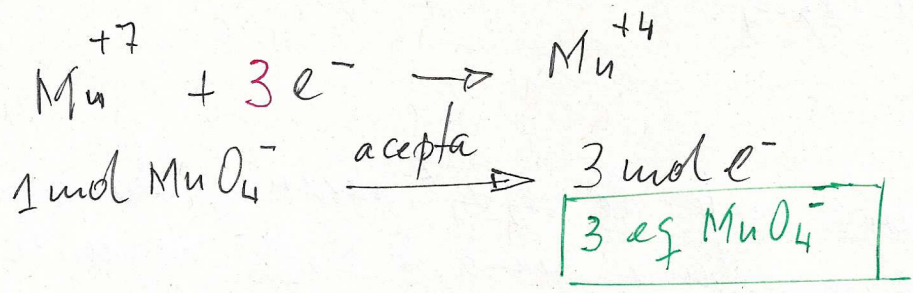 Mn⁺⁷ + 3 e⁻ → Mn⁺⁴
1 mol MnO₄⁻ acepta → 3 mol e⁻
3 eq MnO₄⁻